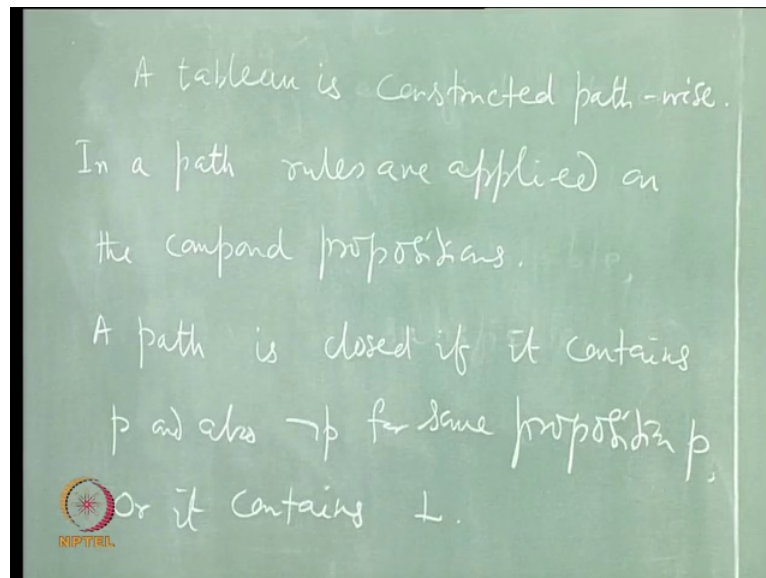 A tableau is constructed path-wise.
In a path rules are applied on
the compond propositions.
A path is closed if it contains
p and also ¬p for some proposition p,
Or it contains ⊥.
NPTEL